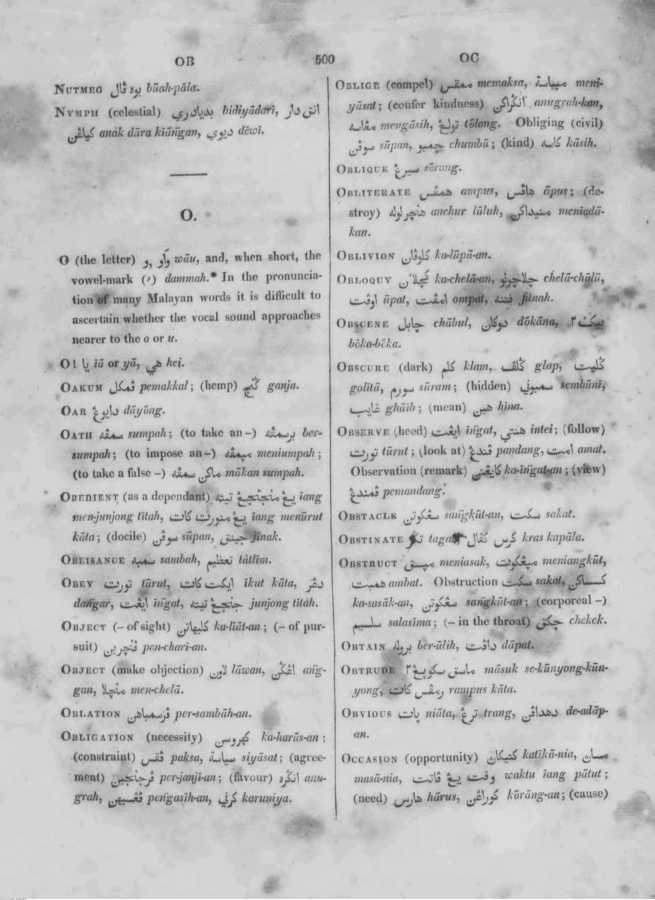 OB
500
OC
NUTMEG بوه ڤال būah-pāla.
NYMPH (celestial) بديادري bidiyādarī, انق دار
كياڠن anak dāra kiāṅgan, ديوي dēwī.
O.
O (the letter) و, واو wāu, and, when short, the
vowel-mark (ُ) dammah.* In the pronuncia-
tion of many Malayan words it is difficult to
ascertain whether the vocal sound approaches
nearer to the o or u.
O! يا iā or yā, هي hei.
OAKUM ڤمكل pemakkal; (hemp) ganja.
OAR دايوڠ dāyūng.
OATH سمڤه sumpah; (to take an –) برسمڤه ber-
sumpah; (to impose an –) meniumpah;
(to take a false –) ماكن سمڤه mākan sumpah.
OBEDIENT (as a dependant) iang
men-junjong tītah, iang menūrut
kāta; (docile) سوڤن sūpan, جينق jīnak.
OBEISANCE سمبه sambah, تعظيم tātlīm.
OBEY تورت tūrut, ايكت كات īkut kāta, دڠر
daṅgar, ايڠت īṅgat, junjong tītah.
OBJECT (– of sight) كليهاتن ka-līāt-an; (– of pur-
suit) ڤنچرين pen-charī-an.
OBJECT (make objection) لاون lāwan, اڠكن aṅg-
gan, منچلا men-chelā.
OBLATION ڤرسمباهن per-sambāh-an.
OBLIGATION (necessity) كهروسن ka-harūs-an;
(constraint) ڤقس paksa, سياسة siyāsat; (agree-
ment) ڤرجنجين per-janjī-an; (favour) انگره anu-
grah, peṅgasīh-an, karunīya.
OBLIGE (compel) memaksa, meni-
yāsat; (confer kindness) anugrah-kan,
meṅgāsih, تولڠ tōlong. Obliging (civil)
سوڤن sūpan, چمبو chumbū; (kind) كاسه kāsih.
OBLIQUE سيرڠ sērong.
OBLITERATE همڤس ampus, هاڤس āpus; (de-
stroy) هنچر لوله anchur lūluh, منيداكن menīadā-
kan.
OBLIVION كلوڤان ka-lūpā-an.
OBLOQUY ka-chelā-an, چلاچولو chelā-chūlū,
اوڤت ūpat, امڤت ompat, فتنه fitnah.
OBSCENE چابل chābul, دوكان dōkāna, بيك۲
bēka-bēka.
OBSCURE (dark) كلم klam, ڬلڤ glap, ڬليت
golītā, سورم sūram; (hidden) سمبوني sembūnī,
غايب ghāib; (mean) هين hīna.
OBSERVE (heed) ايڠت īṅgat, هنتي intei; (follow)
تورت tūrut; (look at) ڤندڠ pandang, امت amat.
Observation (remark) كايڠتن ka-īṅgat-an; (view)
ڤمندڠ pemandang.
OBSTACLE سڠكوتن saṅgkūt-an, سكت sakat.
OBSTINATE tagar كرس كڤال kras kapāla.
OBSTRUCT meniasak, meniangkūt,
همبت ambat. Obstruction سكت sakat, كسساكن
ka-sasāk-an, سڠكوتن saṅgkūt-an; (corporeal –)
سلسيم salasīma; (– in the throat) چكق chekek.
OBTAIN براوله ber-ūlih, داڤت dāpat.
OBTRUDE māsuk se-kūnyong-kūn-
yong, رمڤس كات rampus kāta.
OBVIOUS پات niāta, ترڠ trang, دهداڤن de-adāp-
an.
OCCASION (opportunity) كتيكان katīkā-nia,
masā-nia, وقت يڠ ڤاتت waktu iang pātut;
(need) هارس hārus, كوراڠن kōrāng-an; (cause)